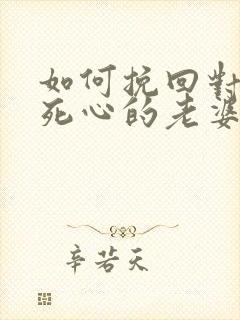 如何挽回對
死心的老婆
辛若天